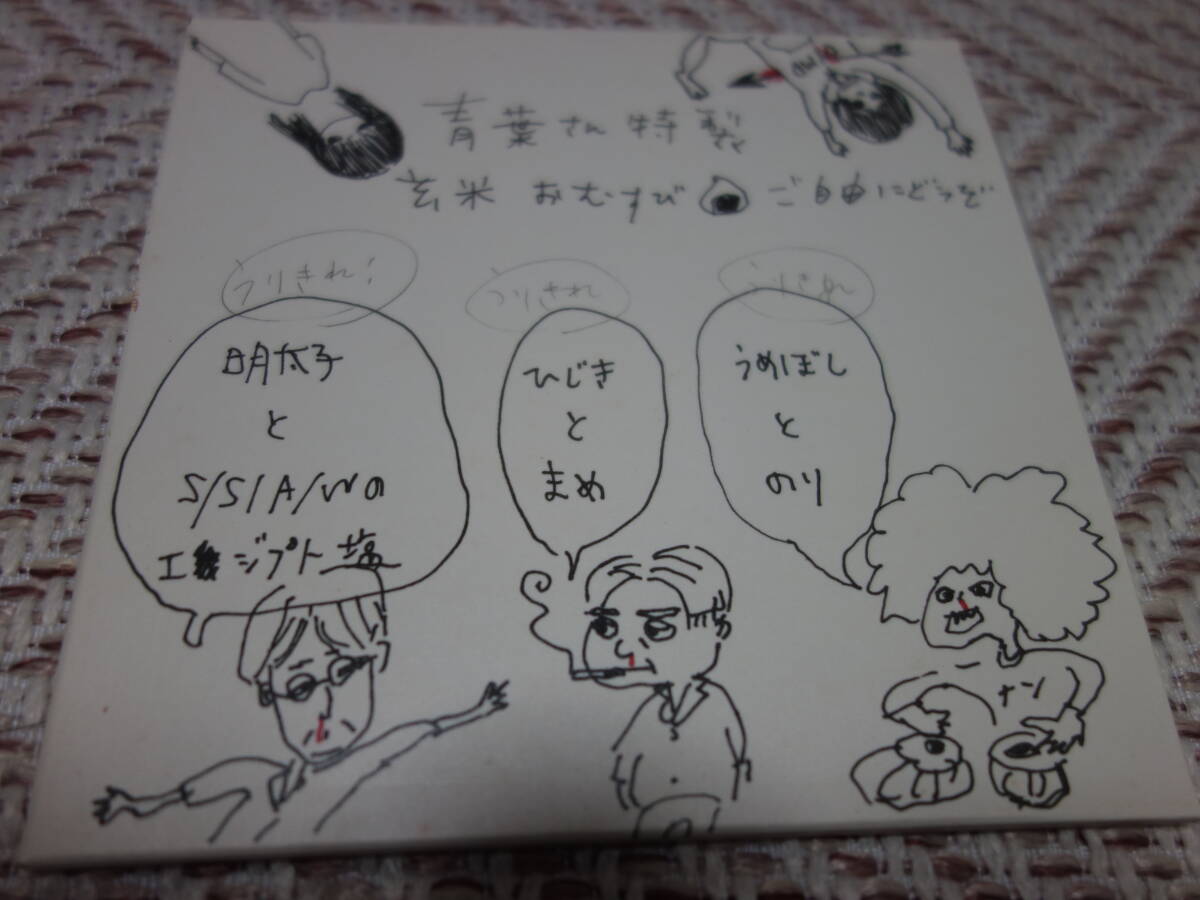 青葉さん特製
玄米おむすび ご自由にどうぞ
うりきれ!
明太子
と
S/S/A/Wの
エジプト塩
うりきれ
ひじき
と
まめ
うりきれ
うめぼし
と
のり
ナン